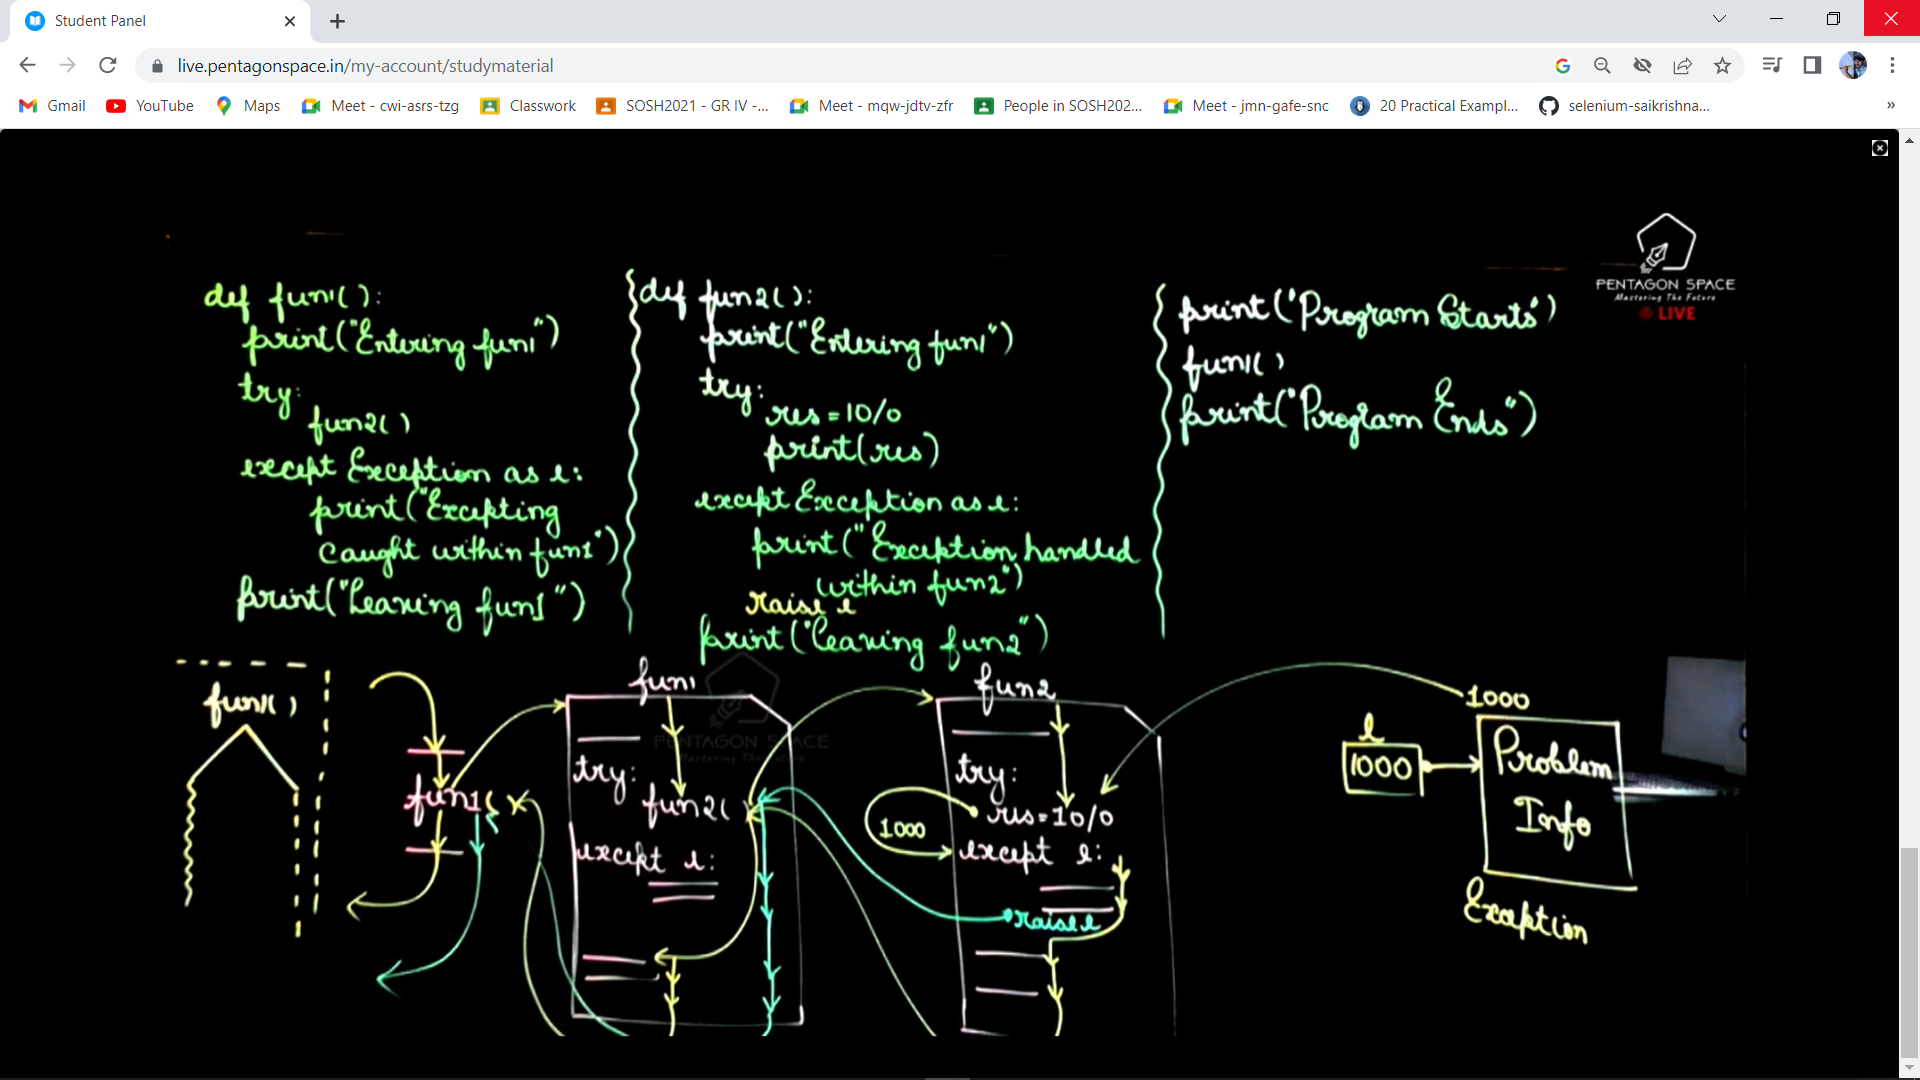 Student Panel
live.pentagonspace.in/my-account/studymaterial
Gmail YouTube Maps Meet - cwi-asrs-tzg Classwork SOSH2021 - GR IV -... Meet - mqw-jdtv-zfr People in SOSH202... Meet - jmn-gafe-snc 20 Practical Exampl... selenium-saikrishna... »
PENTAGON SPACE
Mastering The Future
LIVE
def fun1():
print("Entering fun1")
try:
fun2()
except Exception as e:
print("Excepting
caught within fun1")
print("Leaving fun1")
def fun2():
print("Entering fun1")
try:
res = 10/0
print(res)
except Exception as e:
print("Exception handled
within fun2")
raise e
print("Leaving fun2")
print("Program Starts")
fun1()
print("Program Ends")
fun1()
fun1()
fun1
try:
fun2()
except e:
PENTAGON SPACE
Mastering The Future
fun2
try:
res=10/0
1000
except e:
raise e
1000
e
1000
Problem
Info
Exception